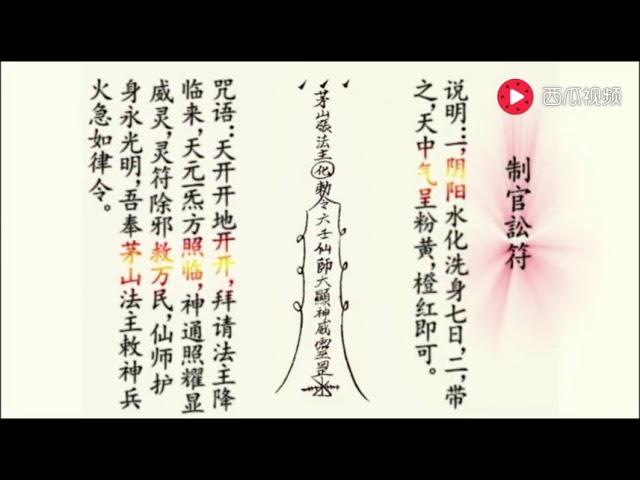 西瓜视频
制官訟符
说明:一,阴阳水化洗身七日,二,带
之,天中气呈粉黄,橙红即可。
茅山張法主化勅令六壬仙師大顯神威靈
咒语:天开开地开开,拜请法主降
临来,天元一炁方照临,神通照耀显
威灵,灵符除邪救万民,仙师护
身永光明,吾奉茅山法主敕神兵
火急如律令。